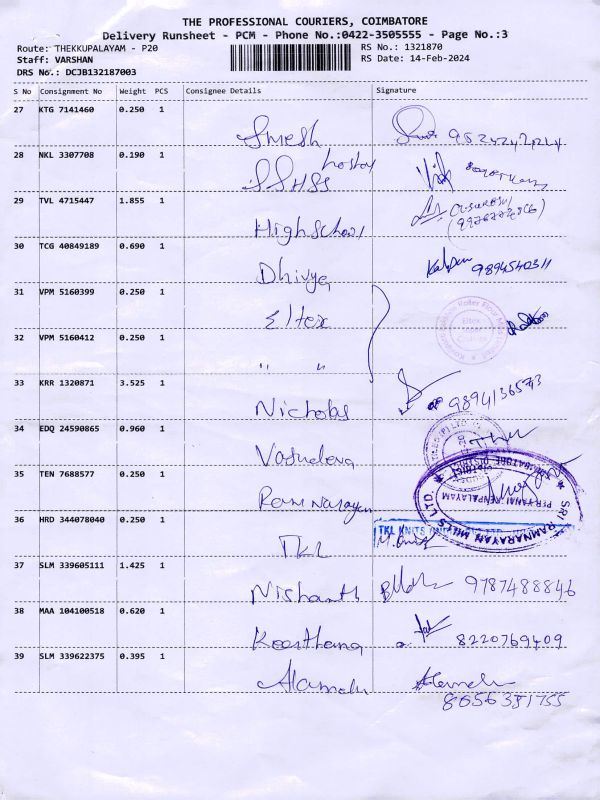 THE PROFESSIONAL COURIERS, COIMBATORE
Delivery Runsheet - PCM - Phone No.:0422-3505555 - Page No.:3
Route: THEKKUPALAYAM - P20 RS No.: 1321870
Staff: VARSHAN RS Date: 14-Feb-2024
DRS No.: DCJB132187003
S No Consignment No Weight PCS Consignee Details Signature
27 KTG 7141460 0.250 1
Smesh
28 NKL 3307708 0.190 1
SSHSS hostel
29 TVL 4715447 1.855 1
High School
30 TCG 40849189 0.690 1
Dhivya 9894540311
31 VPM 5160399 0.250 1
Eltex
32 VPM 5160412 0.250 1
" "
33 KRR 1320871 3.525 1
Nicholas 9894136573
34 EDQ 24590865 0.960 1
Vasudeva
35 TEN 7688577 0.250 1
Ram Narayan
SRI RAMNARAYAN MILLS LTD.
PERIYANAICKENPALAYAM
36 HRD 344078040 0.250 1
TKL KNITS
TKL
37 SLM 339605111 1.425 1
Nishanth 9787488846
38 MAA 104100518 0.620 1
Keerthana 8220769409
39 SLM 339622375 0.395 1
Alamelu Alamelu
8056381755